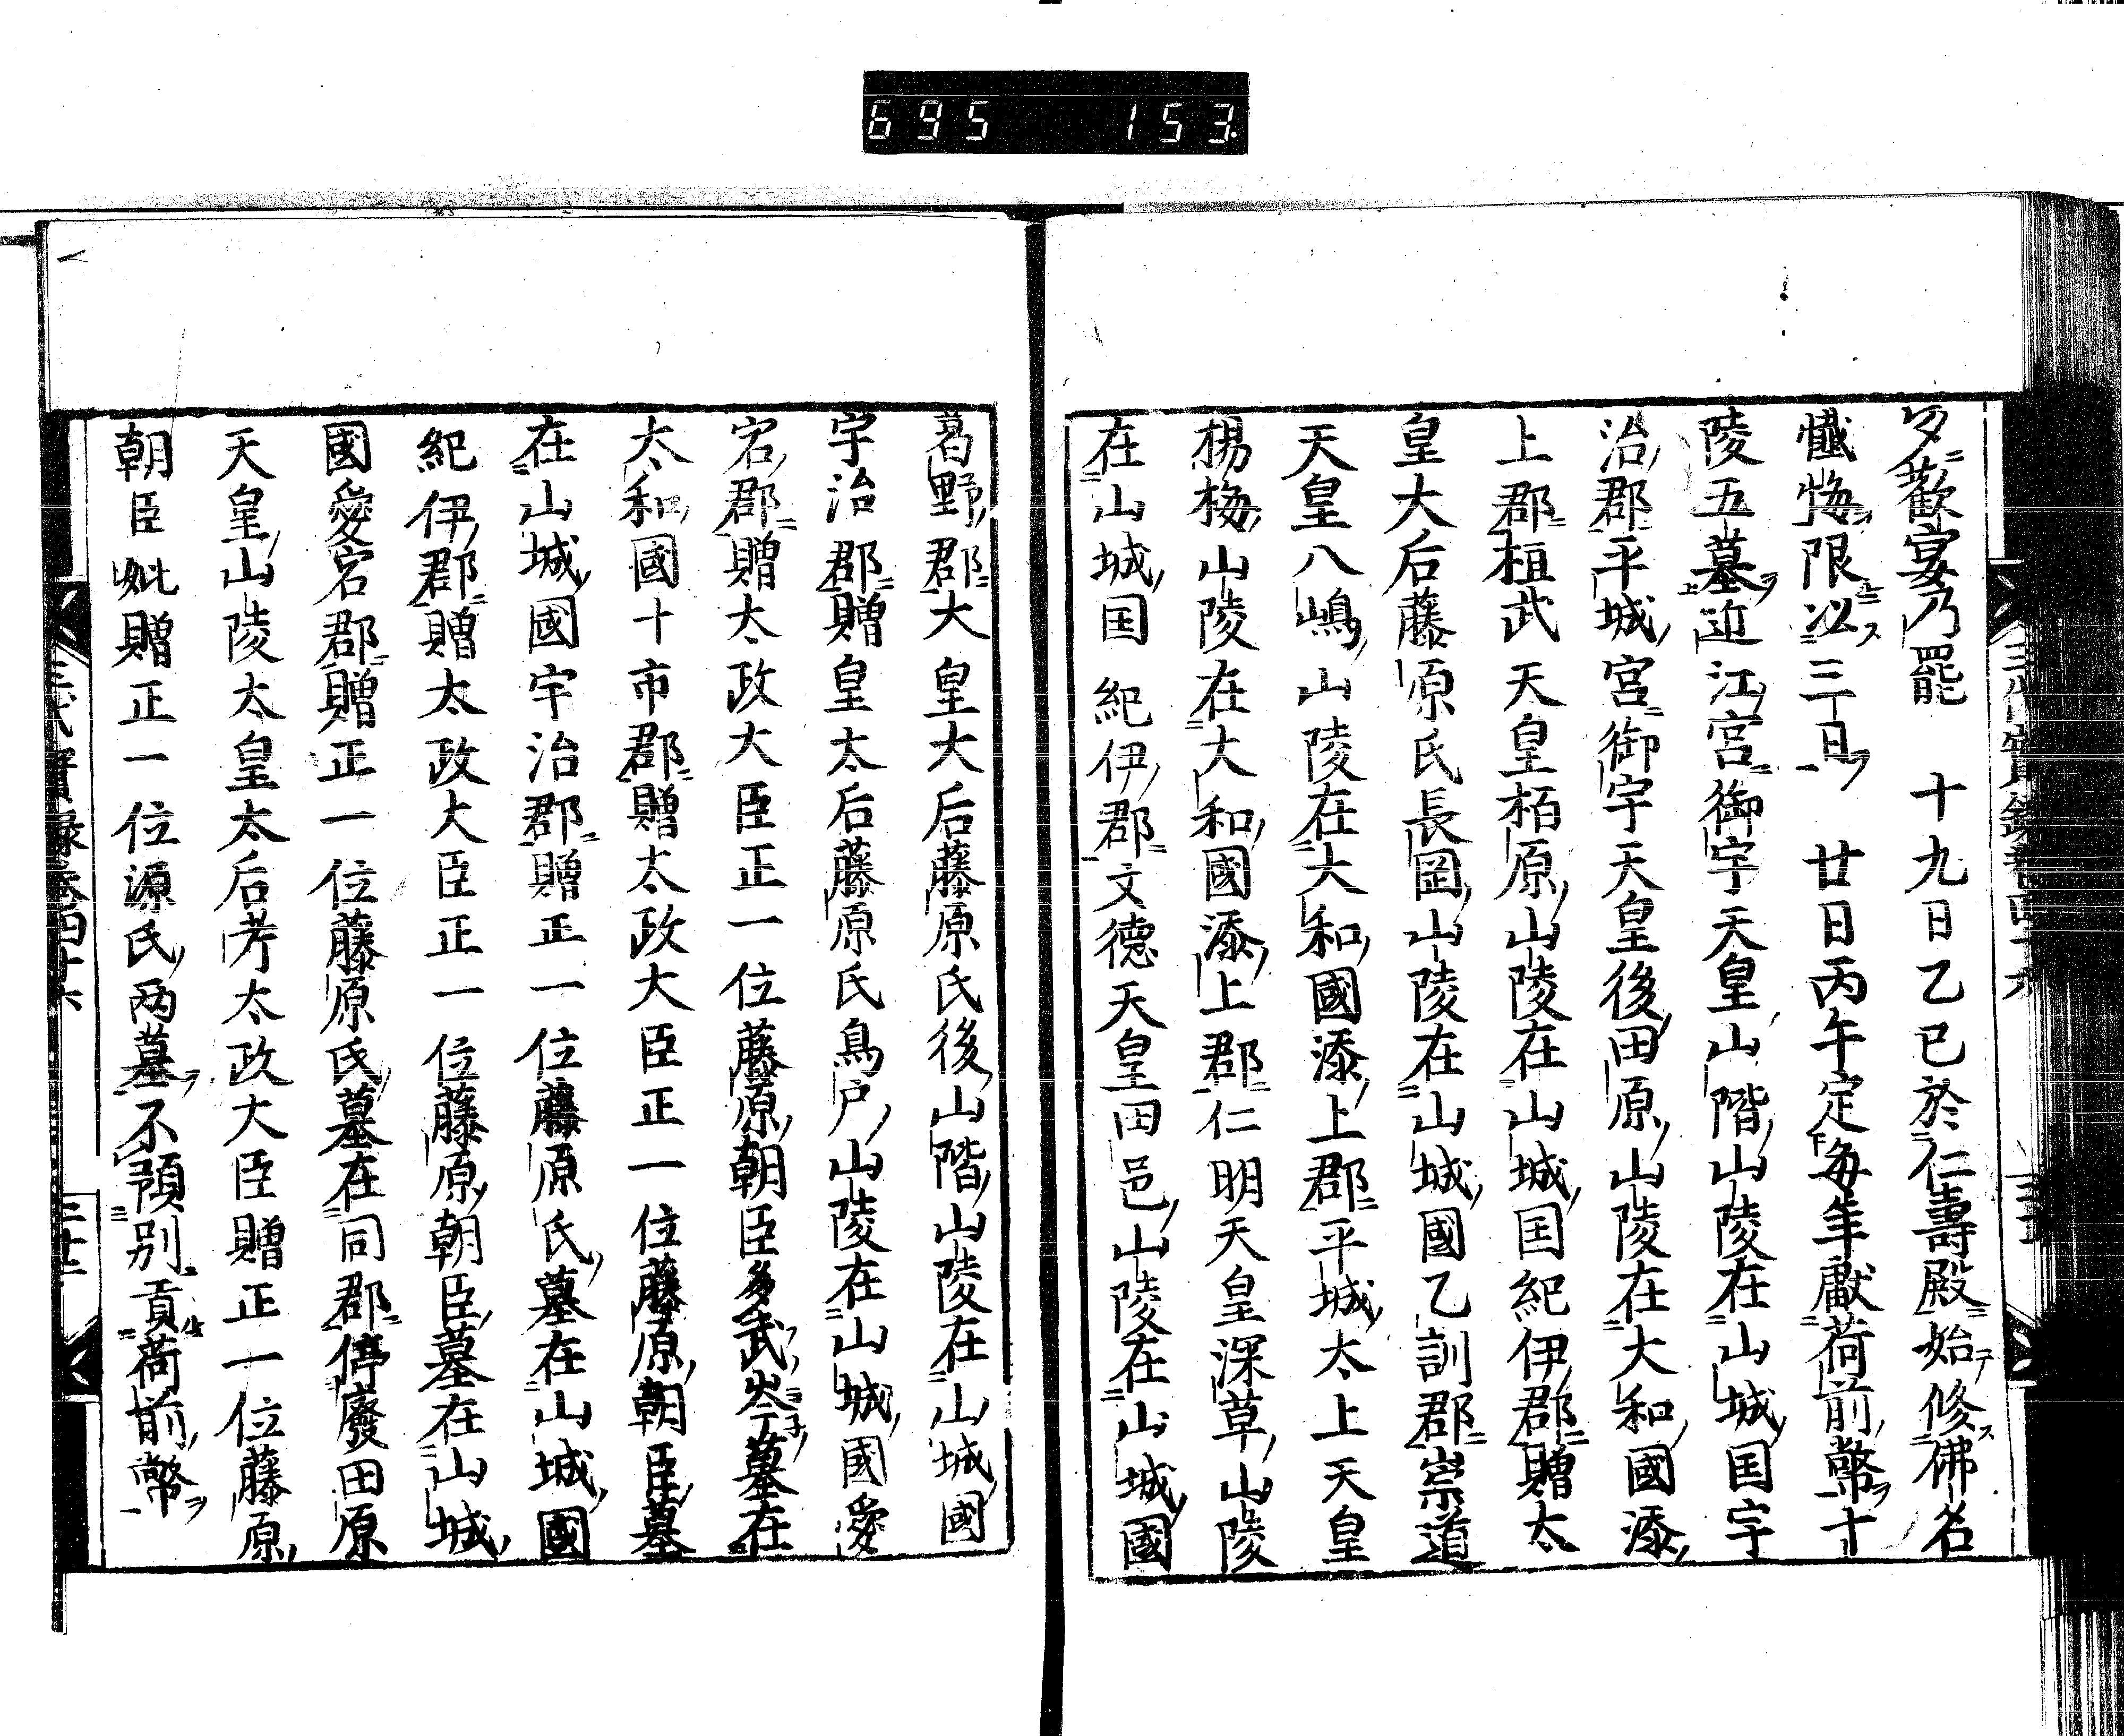 695 153
夕歡宴乃罷 十九日乙巳於仁壽殿始修佛名
懺悔限以三日 廿日丙午定每年獻荷前幣十
陵五墓近江宮御宇天皇山階山陵在山城国宇
治郡平城宮御宇天皇後田原山陵在大和國添
上郡桓武天皇栢原山陵在山城国紀伊郡贈太
皇大后藤原氏長岡山陵在山城國乙訓郡崇道
天皇八嶋山陵在大和國添上郡平城太上天皇
楊梅山陵在大和國添上郡仁明天皇深草山陵
在山城国紀伊郡文德天皇田邑山陵在山城國
葛野郡大皇大后藤原氏後山階山陵在山城國
宇治郡贈皇太后藤原氏鳥戶山陵在山城國愛
宕郡贈太政大臣正一位藤原朝臣多武岑墓在
太和國十市郡贈太政大臣正一位藤原朝臣墓
在山城國宇治郡贈正一位藤原氏墓在山城國
紀伊郡贈太政大臣正一位藤原朝臣墓在山城
國愛宕郡贈正一位藤原氏墓在同郡停廢田原
天皇山陵太皇太后考太政大臣贈正一位藤原
朝臣妣贈正一位源氏两墓不預別貢荷前幣
三代實録卷四十六